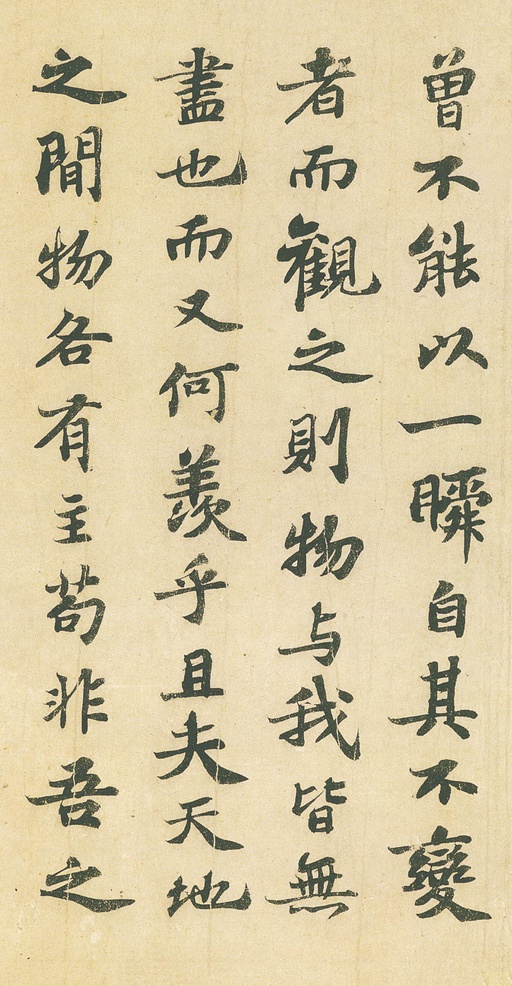 曾不能以一瞬自其不變
者而觀之則物与我皆無
盡也而又何羨乎且夫天地
之間物各有主苟非吾之